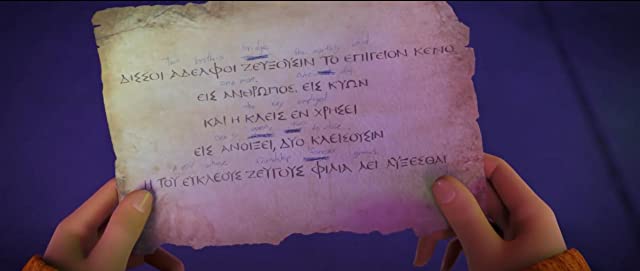 Two brothers bridge the earthly void
ΔΙΣΣΟΙ ΑΔΕΛΦΟΙ ΖΕΥΞΟΥΣΙΝ ΤΟ ΕΠΙΓΕΙΟΝ ΚΕΝΟ
one man, dog
ΕΙΣ ΑΝΘΡΩΠΟΣ, ΕΙΣ ΚΥΩΝ
the key
ΚΑΙ Η ΚΛΕΙΣ ΕΝ ΧΡΗΣΕΙ
to close
ΕΙΣ ΑΝΟΙΞΕΙ, ΔΥΟ ΚΛΕΙΣΟΥΣΙΝ
friendship
Η ΤΟΥ ΕΥΚΛΕΟΥΣ ΖΕΥΓΟΥΣ ΦΙΛΙΑ ΑΕΙ ΑΥΞΕΣΘΑΙ